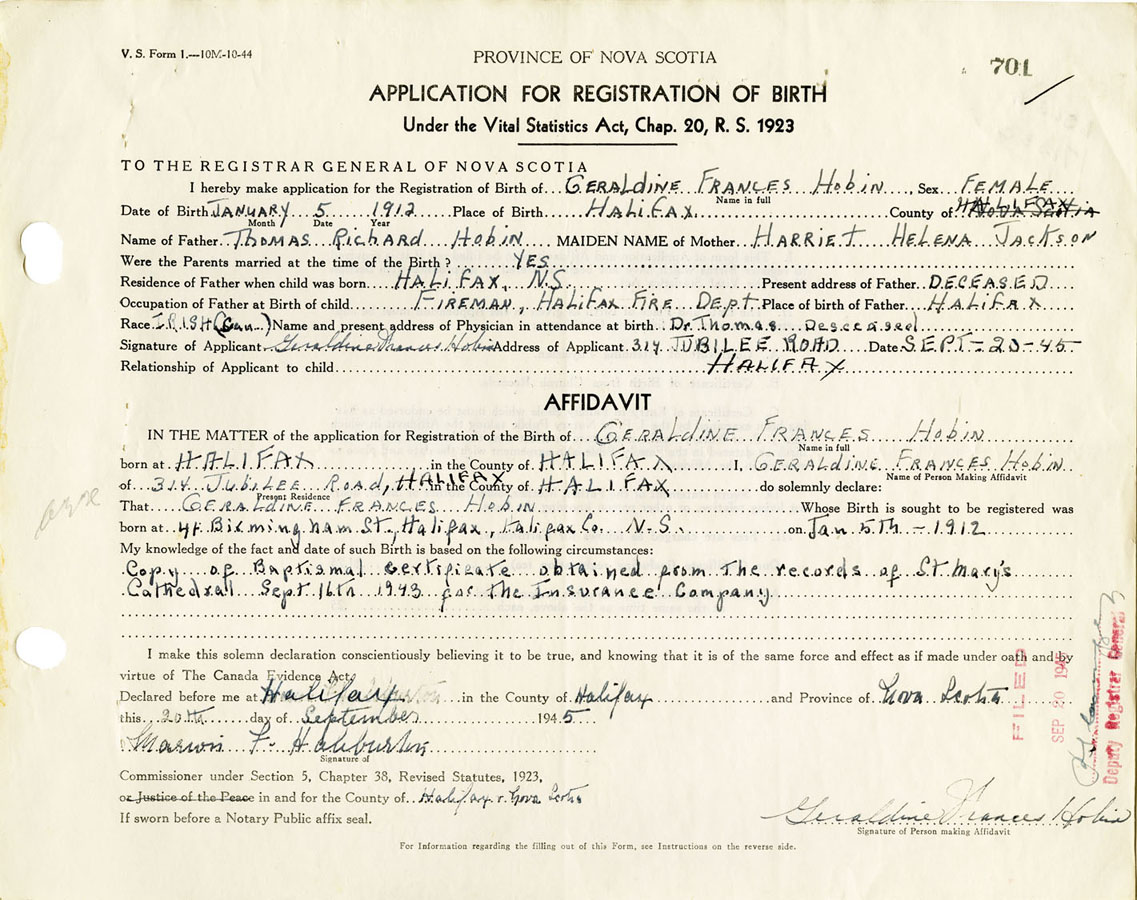 V. S. Form 1.—10M-10-44
PROVINCE OF NOVA SCOTIA
701
APPLICATION FOR REGISTRATION OF BIRTH
Under the Vital Statistics Act, Chap. 20, R. S. 1923
TO THE REGISTRAR GENERAL OF NOVA SCOTIA
I hereby make application for the Registration of Birth of GERALDINE FRANCES HOBIN, Sex FEMALE
Name in full
Date of Birth JANUARY 5 1912 Place of Birth HALIFAX County of HALIFAX NOVA SCOTIA
Month Date Year
Name of Father THOMAS RICHARD HOBIN MAIDEN NAME of Mother HARRIET HELENA JACKSON
Were the Parents married at the time of the Birth? YES
Residence of Father when child was born HALIFAX, N.S. Present address of Father DECEASED
Occupation of Father at Birth of child FIREMAN, HALIFAX FIRE DEPT. Place of birth of Father HALIFAX
Race IRISH (Can.) Name and present address of Physician in attendance at birth Dr. Thomas Desceased
Signature of Applicant Geraldine Frances Hobin Address of Applicant 314 JUBILEE ROAD Date SEPT-20-45
Relationship of Applicant to child HALIFAX
AFFIDAVIT
IN THE MATTER of the application for Registration of the Birth of GERALDINE FRANCES HOBIN
Name in full
born at HALIFAX in the County of HALIFAX I, GERALDINE FRANCES HOBIN
Name of Person Making Affidavit
of 314 JUBILEE ROAD, HALIFAX in the County of HALIFAX do solemnly declare:
Present Residence
That GERALDINE FRANCES HOBIN Whose Birth is sought to be registered was
born at 44 Birmingham St, Halifax, Halifax Co. N.S. on Jan 5th - 1912
My knowledge of the fact and date of such Birth is based on the following circumstances:
Copy of Baptismal certificate obtained from the records of St Mary's
Cathedral Sept 16th 1943 for the Insurance Company
I make this solemn declaration conscientiously believing it to be true, and knowing that it is of the same force and effect as if made under oath and by
virtue of The Canada Evidence Act.
Declared before me at Halifax in the County of Halifax and Province of Nova Scotia
this 20th day of September 1945
Marwin F. Haliburton
Signature of
Commissioner under Section 5, Chapter 38, Revised Statutes, 1923,
or Justice of the Peace in and for the County of Halifax Nova Scotia
If sworn before a Notary Public affix seal.
Geraldine Frances Hobin
Signature of Person making Affidavit
For Information regarding the filling out of this Form, see Instructions on the reverse side.
FILED
SEP 20 1945
Deputy Registrar General